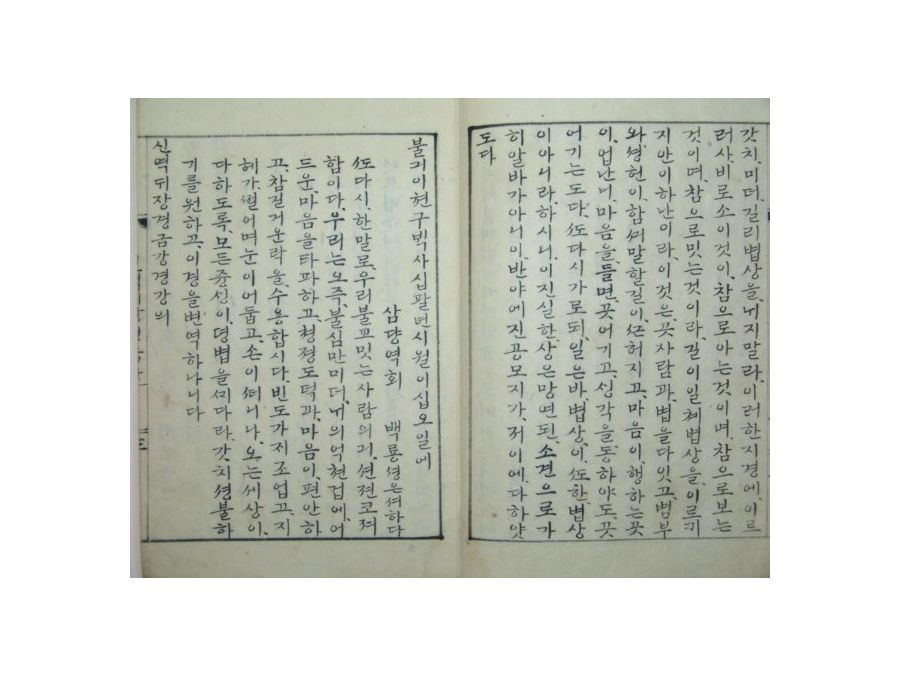 갓치、미더、길리볍상을、ᄂᆡ지말라、이러한지경에、이르
러사、비로소이것이、참으로아는것이며、참으로보는
것이며、참으로밋는것이라、길이일쳬볍상을、이르키
지안이하난이라、이것은、곳사람과、볍을다잇고、볍부
와、셩현이、함ᄭᅴ말할길이、ᄭᅳᆫ허지고、마음이、행하는곳
이、업난니、마음을、들면、곳어기고、ᄉᆡᆼ각을、동하야도、곳
어기는도다、ᄯᅩ다시가로ᄃᆡ、일은바、볍상이、ᄯᅩ한、볍상
이아니라、하시니、이진실한상은、망연된、소견으로가
히알바가아니이、반야에진공모지가、져이에、다하얏
도다
불긔이쳔구ᄇᆡᆨ사십팔년시월이십오일에
삼댱역회 백룡셩은셔하다
ᄯᅩ다시、한말로、우리불교밋는사람의긔、션젼코져
함이다、우리는오즉、불심만미더、ᄂᆡ의억쳔겁에、어
드운、마음을타파하고、쳥졍도덕과、마음이、편안하
고、참길거운락을、수용합시다、빈도가지조업고、지
혜가、썰어며、눈이어둡고、손이ᄯᅥ니나、오는세상이、
다하도록、모든즁ᄉᆡᆼ이、뎡볍을、ᄭᆡ다라、갓치셩불하
기를원하고、이경을번역하나니다
신역ᄃᆡ장경금강경강의